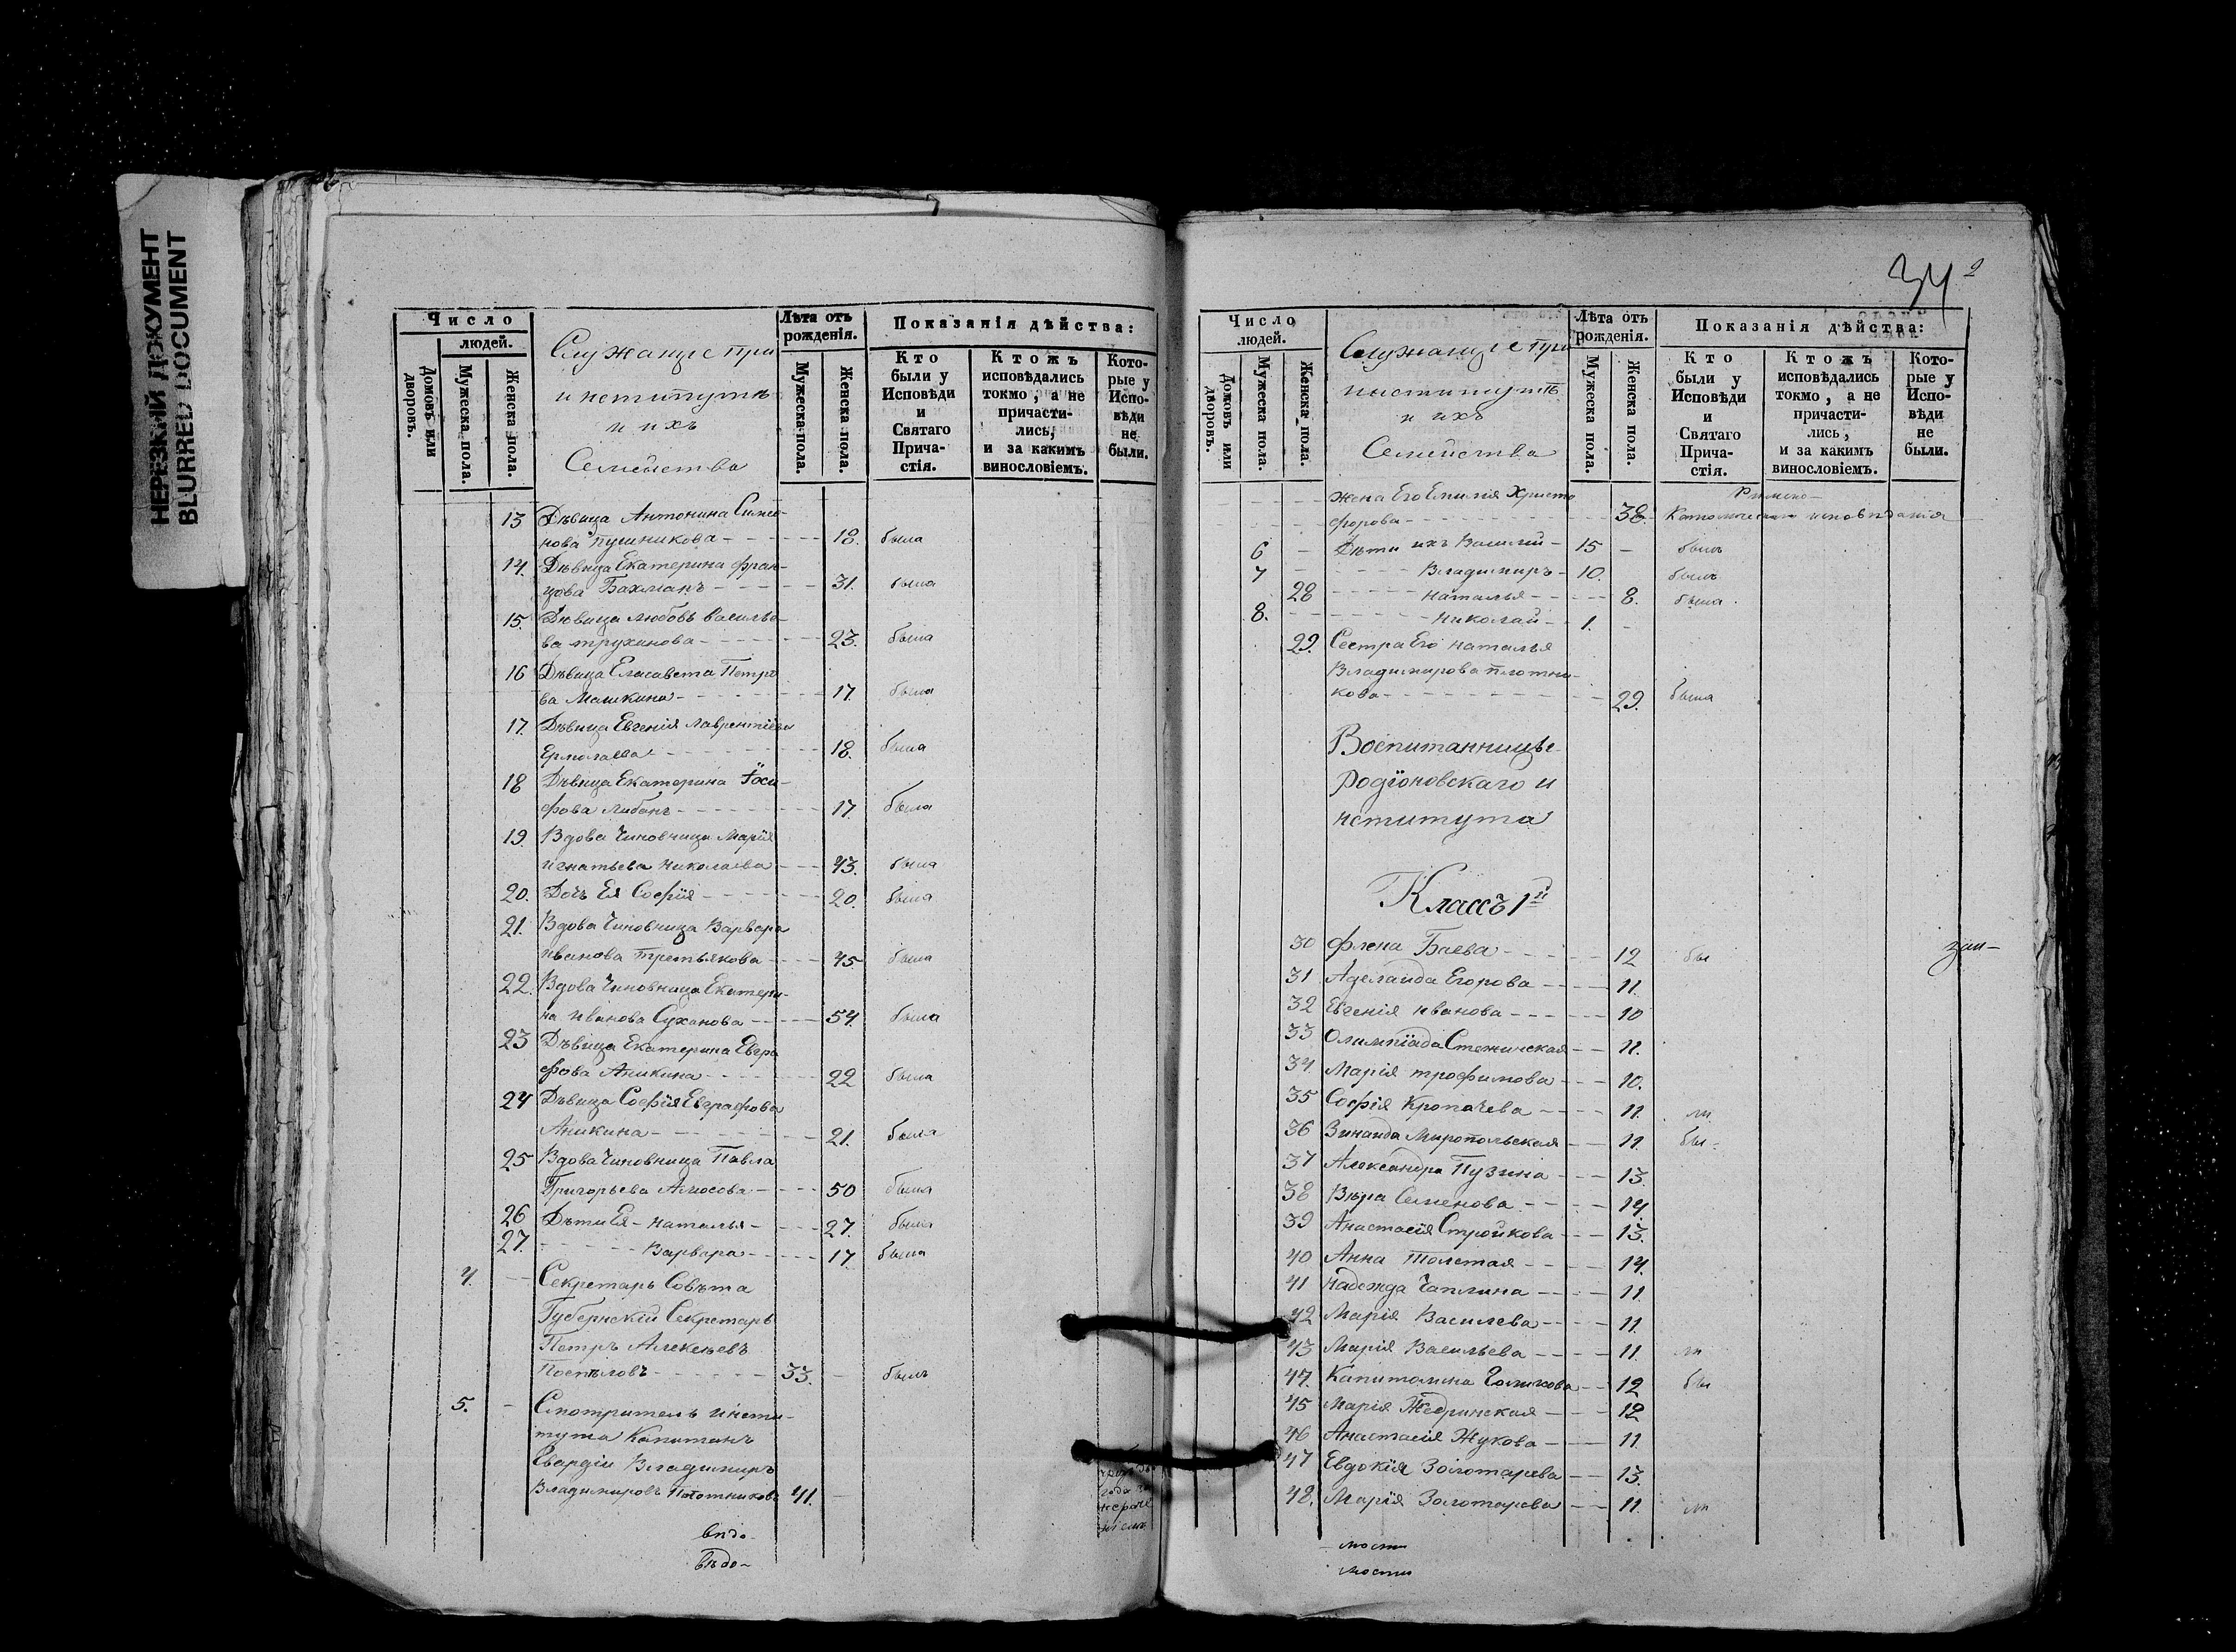 НЕРЕЗКИЙ ДОКУМЕНТ
BLURRED DOCUMENT
Число
людей.
Домовъ или дворовъ.
Мужеска пола.
Женска пола.
Служащіе при
институтѣ
и ихъ
Семейства
Лѣта отъ рожденія.
Мужеска пола.
Женска пола.
Показанія дѣйства:
Кто были у Исповѣди и Святаго Причастія.
Ктожъ исповѣдались токмо, а не причастились, и за какимъ винословіемъ.
Которые у Исповѣди не были.
13 Дѣвица Антонина Симео-
нова Пушникова 18. была
14. Дѣвица Екатерина Фран-
цова Бахманъ 31. была
15. Дѣвица Любовь Василье-
ва Трухинова 23. была
16 Дѣвица Елисавета Петро
ва Машкина 17. была
17. Дѣвица Евгенія Лаврентіева
Ермолаева 18. была
18 Дѣвица Екатерина Іоси-
фова Либанъ 17. была
19. Вдова Чиновница Марія
Игнатьева Николаева 43. была
20. Дочь Ея Софія 20. была
21. Вдова Чиновница Варвара
Иванова Третьякова 45 была
22. Вдова Чиновница Екатери-
на Иванова Суханова 54. была
23 Дѣвица Екатерина Евгра
фова Аникина 22 была
24 Дѣвица Софія Евграфова
Аникина 21. была
25 Вдова Чиновница Павла
Григорьева Амосова 50 была
26 Дѣти Ея - Наталья 27. была
27. Варвара 17. была
4. Секретарь Совѣта
Губернскій Секретарь
Петръ Алексѣевъ
Поспѣловъ 33. былъ
5. Смотритель инсти-
тута Капитанъ
Гвардіи Владимиръ
Владимировъ Плотниковъ 41.
вѣдо-
вѣдо-
34
Число
людей.
Домовъ или дворовъ.
Мужеска пола.
Женска пола.
Служащіе при
институтѣ
и ихъ
Семейства
Лѣта отъ рожденія.
Мужеска пола.
Женска пола.
Показанія дѣйства:
Кто были у Исповѣди и Святаго Причастія.
Ктожъ исповѣдались токмо, а не причастились, и за какимъ винословіемъ.
Которые у Исповѣди не были.
Жена Его Емилія Христо
Римско-
форова 38. Католическаго исповѣданія
6 Дѣти ихъ Василій 15 былъ
7 Владимиръ 10. былъ
28 Наталья 8. была
8. Николай 1.
29. Сестра Его Наталья
Владимирова Плотни-
кова 29. была
Воспитанницы
Родіоновскаго и
нститута
Классъ 1й
30 Флена Баева 12 бы
31 Аделаида Егорова 11.
32 Евгенія Иванова 10
33 Олимпіада 11.
34 Марія Трофимова 10.
35 Софія Кропачева 11. ли
36 Зинаида Миропольская 11. бы-
37 Александра Пузина 13.
38 Вѣра Семенова 14
39 Анастасія Стройкова 13.
40 Анна Толстая 14.
41 Надежда Чаплина 11
42 Марія Василева 11.
43 Марія Васильева 11. ли
44. Капитолина Голикова 12 бы
45 Марія Жедринская 12
46 Анастасія Жукова 11.
47 Евдокія Золотарева 13.
48. Марія Золотарева 11. ли
мости
мости